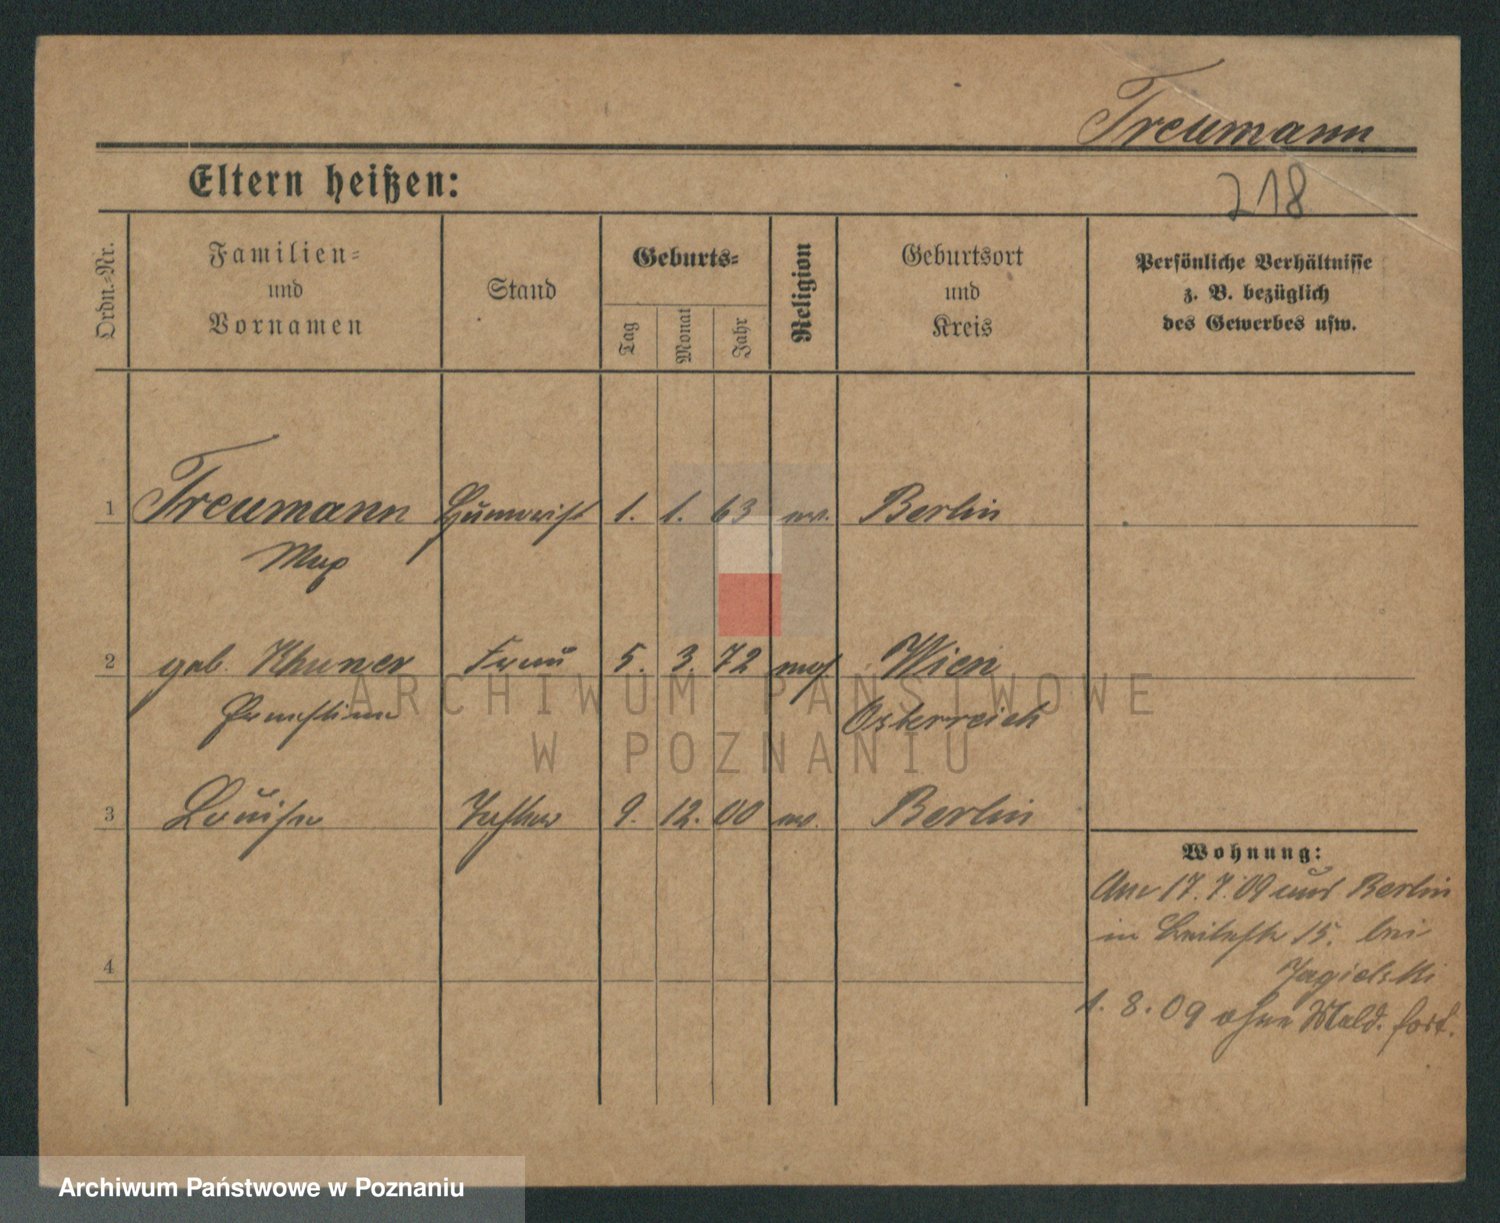 Treumann
Eltern heißen:
218
Ordn.-Nr.
Familien-
und
Vornamen
Stand
Geburts-
Tag
Monat
Jahr
Religion
Geburtsort
und
Kreis
Persönliche Verhältnisse
z. B. bezüglich
des Gewerbes usw.
1 Treumann Humorist 1. 1. 63 Berlin
Max
2 geb. Khuner Frau 5. 3. 72 mos. Wien
Ernestine Österreich
3 Louise Tochter 9. 12. 00 Berlin
Wohnung:
17. 7. 09 Berlin
in 15. bei
4
Jagielski
1. 8. 09 ohne Meld. fort.
ARCHIWUM PAŃSTWOWE
W POZNANIU
Archiwum Państwowe w Poznaniu